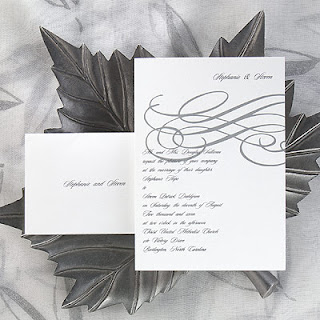 Stephanie & Steven
Mr. and Mrs. Douglas
request the pleasure of your company
at the marriage of their daughter
Stephanie
to
Steven Patrick
on Saturday, the eleventh of August
Two thousand and seven
at two o'clock in the afternoon
Christ United Methodist Church
Drive
Burlington, North Carolina
Stephanie and Steven